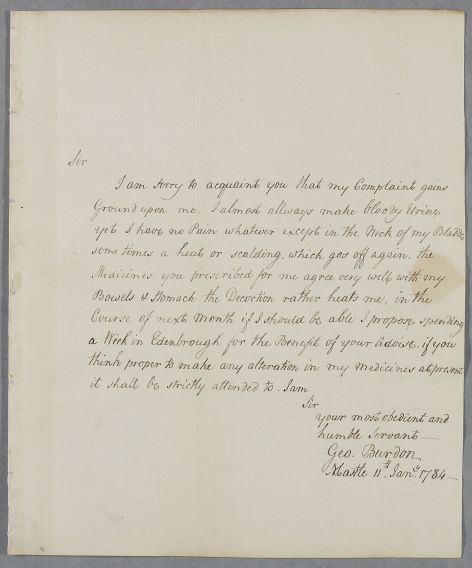 Sir
I am sorry to acquaint you that my Complaint gains
Ground upon me, I almost allways make bloody Urine
yet I have no Pain whatever except in the Neck of my Bladder
some times a heat or scalding, which gos off again, the
Medicines you prescribed for me agree very well with my
Bowels & Stomach the Decoction rather heats me, in the
Course of next Month if I should be able I propose spending
a Week in Edenbrough for the Benefit of your Advise, if you
think proper to make any alteration in my medicines at present
it shall be strictly attended to. I am
Sir
your most obedient and
humble Servant
Geo. Burdon
11th Jany. 1784